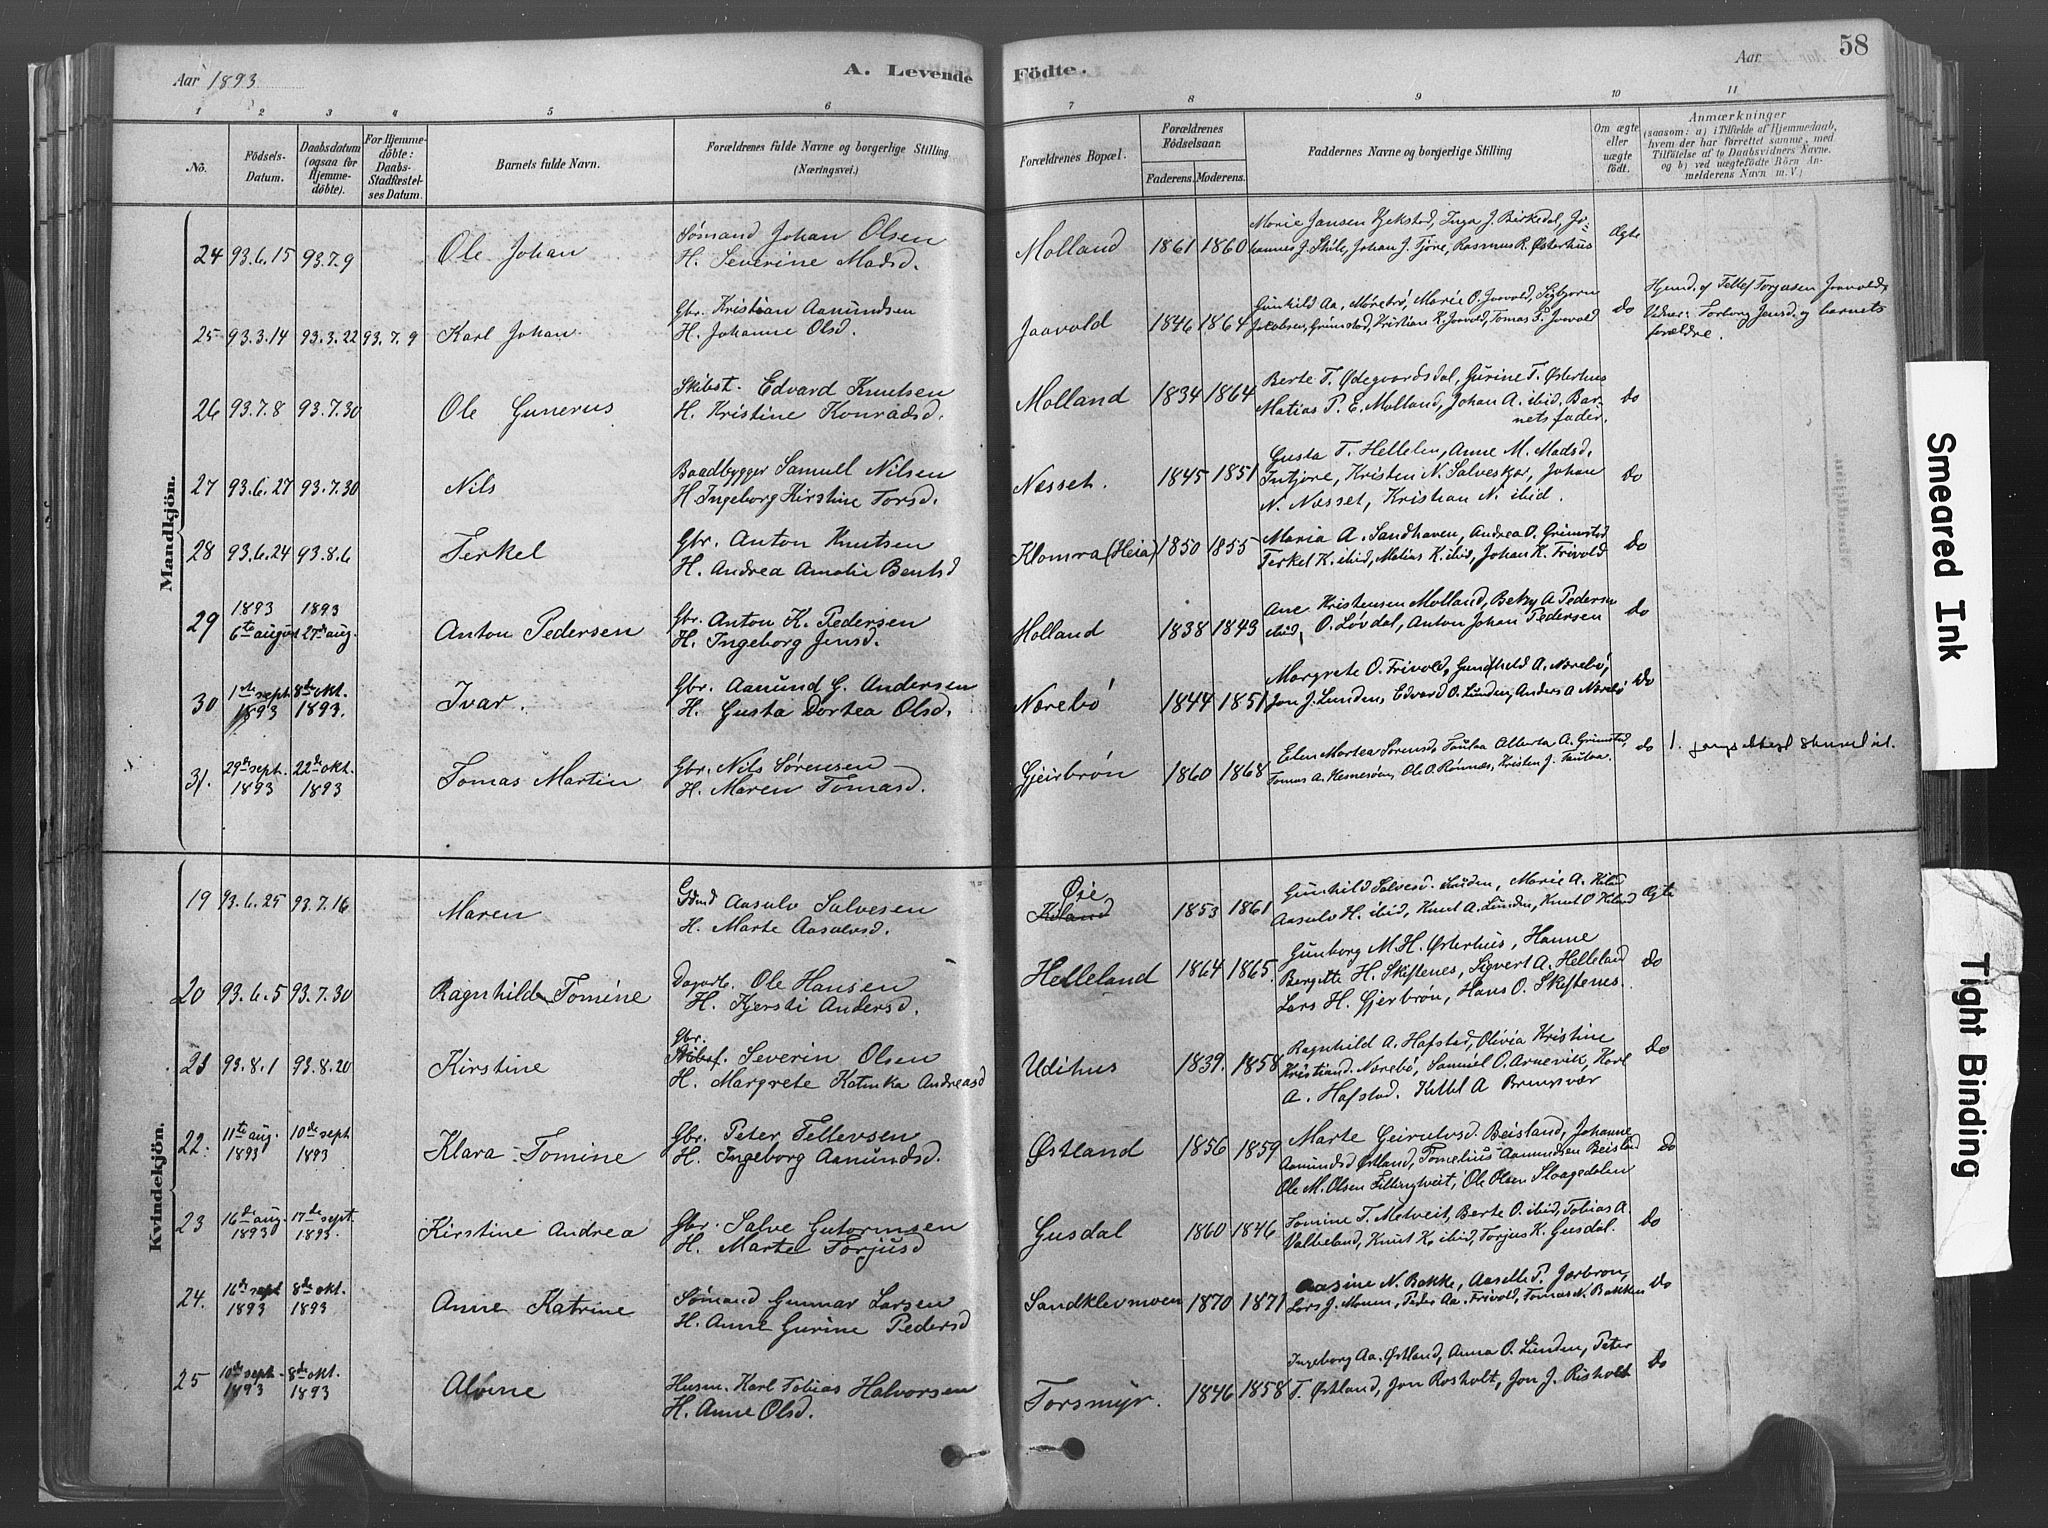 Aar 1893
A. Levende
Födte.
Aar
58
1 2 3 4 5 6 7 8 9 10 11
No.
Födsels-
Datum.
Daabsdatum
(ogsaa for
Hjemme-
döbte).
For Hjemme-
döbte:
Daabs-
Stadfæstel-
ses Datum.
Barnets fulde Navn.
Forældrenes fulde Navne og borgerlige Stilling
(Næringsvei.)
Forældrenes Bopæl.
Forældrenes
Födselsaar.
Faderens. Moderens.
Faddernes Navne og borgerlige Stilling
Om ægte
eller
uægte
födt.
Anmærkninger
(saasom: a) i Tilfælde af Hjemmedaab,
hvem der har forrettet samme, med
Tilföielse af to Daabsvidners Navne,
og b) ved uægtefödte Börn An-
melderens Navn m. V.)
Mandkjön.
24 93.6.15 93.7.9 Ole Johan
Sømand Johan Olsen
H. Severine Madsd.
Molland 1861 1860
Marie Jansen Gjekstad, Inga J. Birkedal, Jo-
hannes J. Skile, Johan J. Tjore, Rasmus R. Østerhus
Ægte
25 93.3.14 93.3.22 93.7.9 Karl Johan
Gbr. Kristian Aanundsen
H. Johanne Olsd.
Jaavold 1846 1864
Gunhild Aa. Mørebrø, Marie O. Jaavold, Sigbjørn
Jakobsen, Grimstad, Kristian K. Jaavold, Tomas T. Jaavold
do
Hjemd. af Tellef Torgersen Jaavold,
Vidner: Torborg Jensd. og barnets
forældre.
26 93.7.8 93.7.30 Ole Gunerus
Skibst. Edvard Knutsen
H. Kristine Konradsd.
Molland 1834 1864
Berte T. Ødegaardsdal, Gurine T. Østerhus
Matias P. E. Molland, Johan A. ibid, Bar-
netsfader.
do
27 93.6.27 93.7.30 Nils
Baadbygger Samuel Nilsen
H. Ingeborg Kirstine Torsd.
Næsset. 1845 1851
Gusta T. Hellelen, Anne M. Madsd.
Intjore, Kristen N. Salveskjær, Johan
N. Næsset, Kristian N. ibid.
do
28 93.6.24 93.8.6 Terkel
Gbr. Anton Knutsen
H. Andrea Amalie Bentsd
Klomra (Heia) 1850 1855
Maria A. Sandhaven, Andrea O. Grimstad
Terkel K. ibid, Matias K. ibid, Johan K. Frivold
do
29 1893 6te august 1893 27de aug. Anton Pedersen
Gbr. Anton K. Pedersen
H. Ingeborg Jensd.
Molland 1838 1843
Ane Kristensen Molland, Betzy A. Pedersen
ibid, O. Løvdal, Anton Johan Pedersen
do
30 1ste sept. 1893 8de okt. 1893. Ivar.
Gbr. Aanund G. Andersen
H. Gusta Dortea Olsd.
Nørebø 1844 1851
Margrete O. Frivold, Gundhild A. Nørebø,
Jon J. Lunden, Edvard O. Lunden, Anders A. Nørebø
do
31. 29de sept. 1893 22de okt. 1893 Tomas Martin
Gbr. Nils Sørensen
H. Maren Tomasd.
Gjeirbrøn 1860 1868
Elen Mortea Sørensd., Taulaa Alberta A. Grimstad,
Tomas A. Hesnesøen, Ole O. Rønnes, Kristen J. Taulaa.
do
Kvindekjön.
19 93.6.25 93.7.16 Maren
Aasulv Salvesen
H. Marte Aasulvsd.
Øie
Kiland 1853 1861
Gunhild Salvesd. Lunden, Marie A. Kiland
Aasulv H. ibid, Knut A. Lunden, Knut O. Kiland
Ægte
20 93.6.5 93.7.30 Ragnhilde Tomine
Dagarb. Ole Hansen
H. Kjersti Andersd.
Helleland 1864 1865.
Gunborg M. H. Østerhus, Hanne
Bergitte H. Skiftenes, Sigvert A. Helleland
Lars H. Gjerbrøn, Hans O. Skiftenes.
do
21 93.8.1 93.8.20 Kirstine
Gbr.
Skibsf. Severin Olsen
H. Margrete Katinka Andreasd
Udihus 1839. 1858
Ragnhild A. Hafstad, Olivia Kristine
Kristiand. Nørebø, Samuel O. Arnevik, Karl
A. Hafstad. Kittel A Bringsvær
do
22. 11te aug. 1893 10de sept 1893 Klara Tomine
Gbr. Peter Tellevsen
H. Ingeborg Aanundsd.
Østland 1856 1859
Marte Geirulvsd. Beisland, Johanne
Aamundsd Østland, Tomelius Aanundsen Beisland
Ole M. Olsen Fillingtveit, Ole Olsen Slaagedalen
do
23 16de aug. 1893 17de sept. 1893. Kirstine Andrea
Gbr. Salve Gutormsen
H. Marte Torjusd
Gusdal 1860 1846
Tomine T. Metveit, Berte O. ibid, Tobias A.
Valheland, Knut K. ibid, Torjus K. Gusdal.
do
24. 16de sept 1893 8de okt. 1893 Anne Katrine
Sømand Gunnar Larsen
H. Anne Gurine Pedersd
Sandklevmoen 1870 1871
Aasine N. Bakke, Aaselle P. Jorbron,
Lars J. Moen, Peder Aa. Frivold, Tomas N. Bakken
do
25 10de sept. 1893 8de okt. 1893 Alvine
Husm. Karl Tobias Halvorsen
H. Anne Olsd.
Torsmyr. 1846 1858
Ingeborg Aa. Østland, Anna O. Lunden, Peter
T. Østland, Jon Rosholt, Jon J. Risholt
do
Smeared Ink
Tight Binding